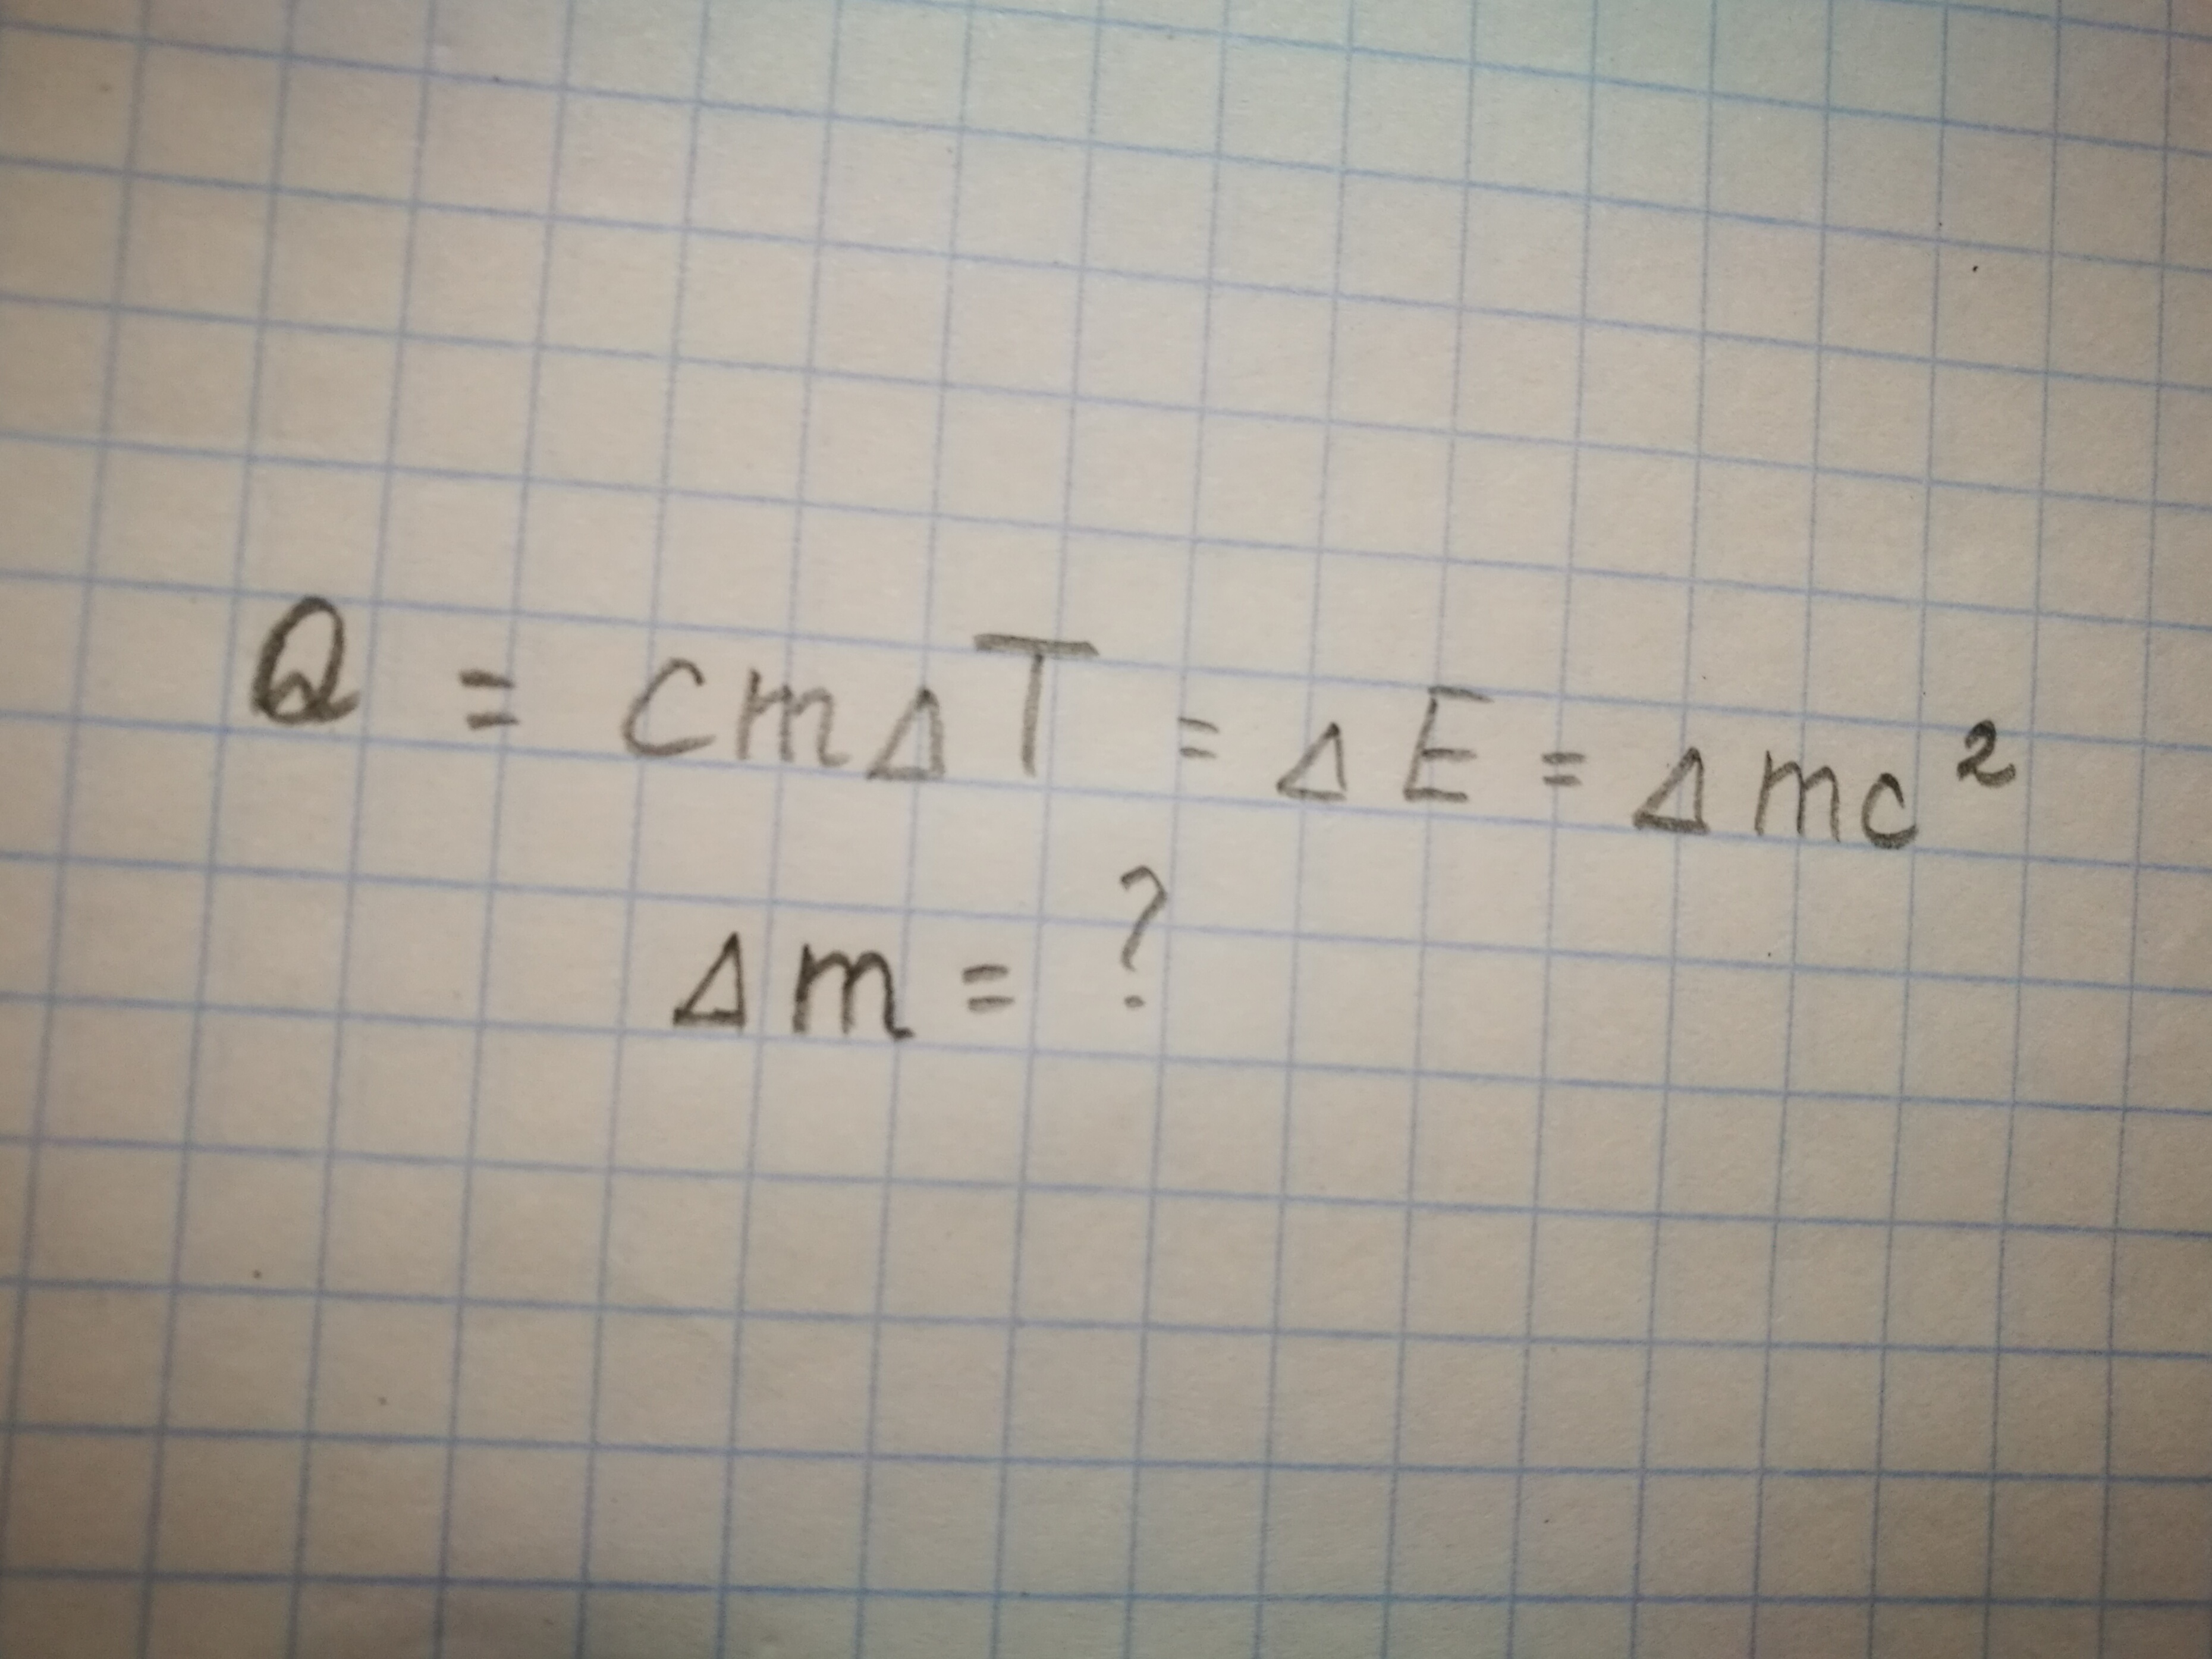 Q = cmΔT = ΔE = Δmc²
Δm = ?